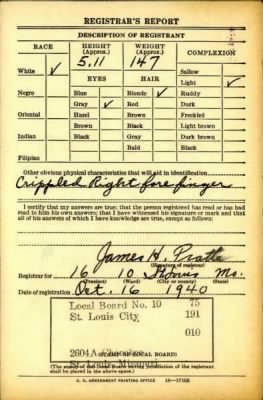 REGISTRAR'S REPORT
DESCRIPTION OF REGISTRANT
RACE HEIGHT (Approx.) WEIGHT (Approx.) COMPLEXION
5.11 147
White ✓ Sallow
EYES HAIR Light ✓
Negro Blue Blonde ✓ Ruddy
Gray ✓ Red Dark
Oriental Hazel Brown Freckled
Brown Black Light brown
Indian Black Gray Dark brown
Bald Black
Filipino
Other obvious physical characteristics that will aid in identification
Crippled Right fore finger
I certify that my answers are true; that the person registered has read or has had
read to him his own answers; that I have witnessed his signature or mark and that
all of his answers of which I have knowledge are true, except as follows:
James H. Pratte
(Signature of registrar)
Registrar for 16 10 St Louis Mo.
(Precinct) (Ward) (City or county) (State)
Date of registration Oct. 16 1940
Local Board No. 10 75
St. Louis City 191
010
2604A Cherokee
St. Louis, Missouri
(STAMP OF LOCAL BOARD)
(The stamp of the Local Board having jurisdiction of the registrant
shall be placed in the above space.)
U. S. GOVERNMENT PRINTING OFFICE 16-17105